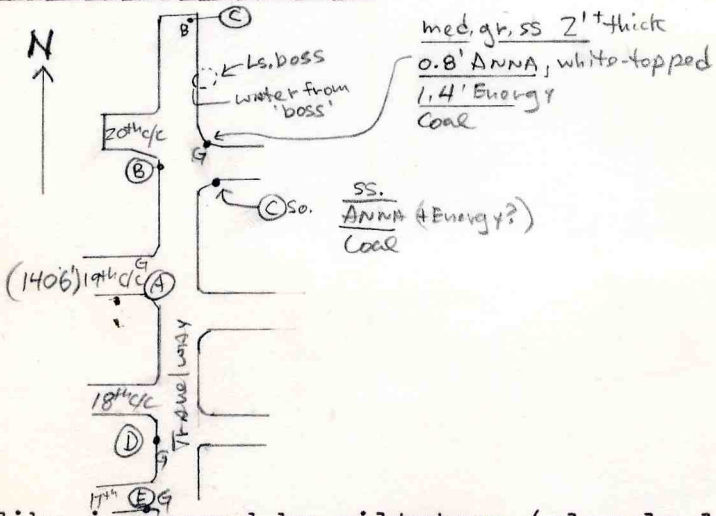 N
B
C
Ls. boss
water from
'boss'
med. gr. ss 2'+ thick
0.8' ANNA, white-topped
1.4' Energy
Coal
20th c/c
G
B
C so.
ss.
ANNA (+Energy?)
Coal
(1406') 19th c/c G A
Travelway
18th c/c
D
G
17th E G